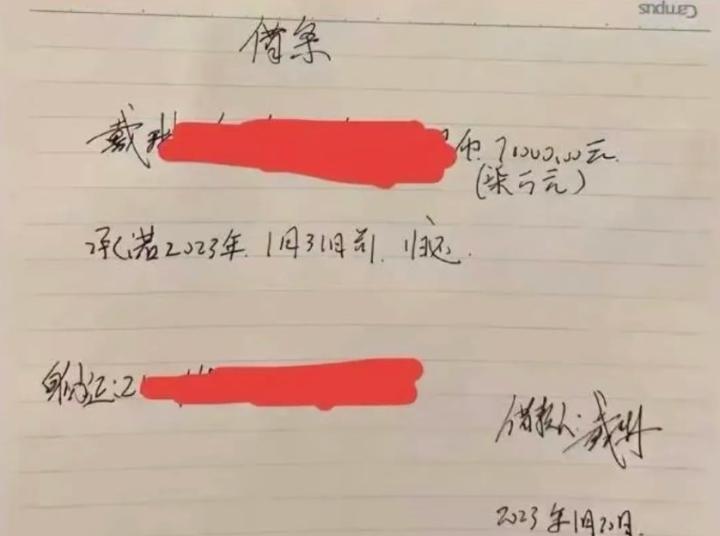 Campus
借条
戴 币 71000.00元
(柒万元)
承诺2023年 1月31日前 归还
身份证:2
借款人:戴
2023年1月20日